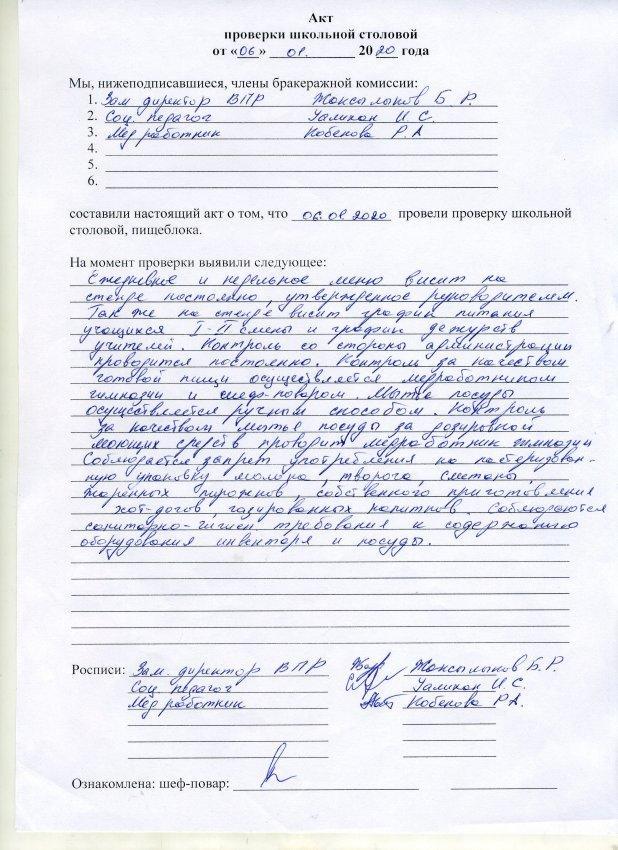 Акт
проверки школьной столовой
от «06» 01. 2020 года
Мы, нижеподписавшиеся, члены бракеражной комиссии:
1. Зам. директор ВПР Жаксылыков Б. Р.
2. Соц. педагог Уалихан И. С.
3. Мед работник Кобекова Р. А
4.
5.
6.
составили настоящий акт о том, что 06.01.2020 провели проверку школьной
столовой, пищеблока.
На момент проверки выявили следующее:
Ежедневное и недельное меню висит на
стенде постоянно, утвержденное руководителем.
Так же на стенде висит график питания
учащихся I-II смены и график дежурств
учителей. Контроль со стороны администрации
проводится постоянно. Контроль за качеством
готовой пищи осуществляется медработником
гимназии и шеф-поваром. Мытье посуды
осуществляется ручным способом. Контроль
за качеством мытье посуды за дозировкой
моющих средств проводит медработник гимназии
Соблюдается запрет употребления на пастеризован-
ную упаковку молока, творога, сметаны,
жаренных пирожков, собственного приготовления
хот-догов газированных напитков. Соблюдаются
санитарно-гигиен. требования к содержанию
оборудования инвентаря и посуды.
Росписи: Зам. директор ВПР Жаксылыков Б. Р.
Соц педагог Уалихан И. С.
Мед работник Кобекова Р. А.
Ознакомлена: шеф-повар: